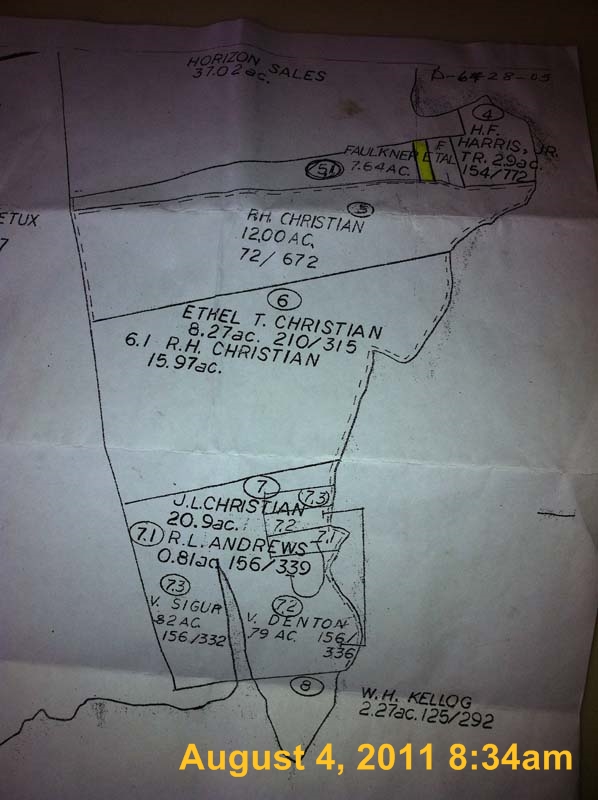 HORIZON SALES
37.02 ac.
D-6428-05
4
H.F.
HARRIS, JR.
TR. 29ac.
154/772
FAULKNER ETAL
7.64 AC.
F
5.1
ETUX
7
5
R.H. CHRISTIAN
12.00 AC.
72/672
6
ETHEL T. CHRISTIAN
8.27ac. 210/315
6.1 R.H. CHRISTIAN
15.97ac.
7
J.L. CHRISTIAN
20.9ac.
7.3
7.2
7.1
7.1 R.L. ANDREWS
0.81ac 156/339
7.3
V. SIGUR
.82 AC.
156/332
7.2
V. DENTON
.79 AC. 156/
336
8
W.H. KELLOG
2.27ac. 125/292
August 4, 2011 8:34am